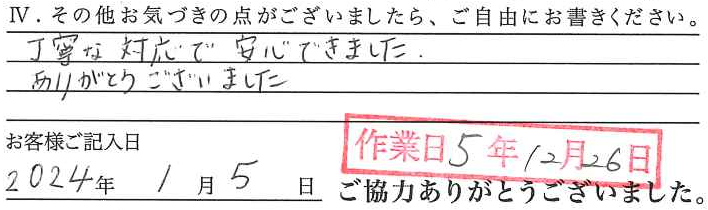 Ⅳ．その他お気づきの点がございましたら、ご自由にお書きください。
丁寧な対応で安心できました.
ありがとうございました
お客様ご記入日
作業日5年12月26日
2024年 1月5日
ご協力ありがとうございました。